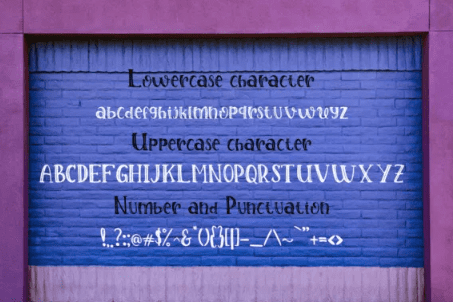 Lowercase character
abcdefghijklmnopqrstuvwxyz
Uppercase character
ABCDEFGHIJKLMNOPQRSTUVWXYZ
Number and Punctuation
!.,?:;@#$%^&*(){}[]-_/\~`"+=<>